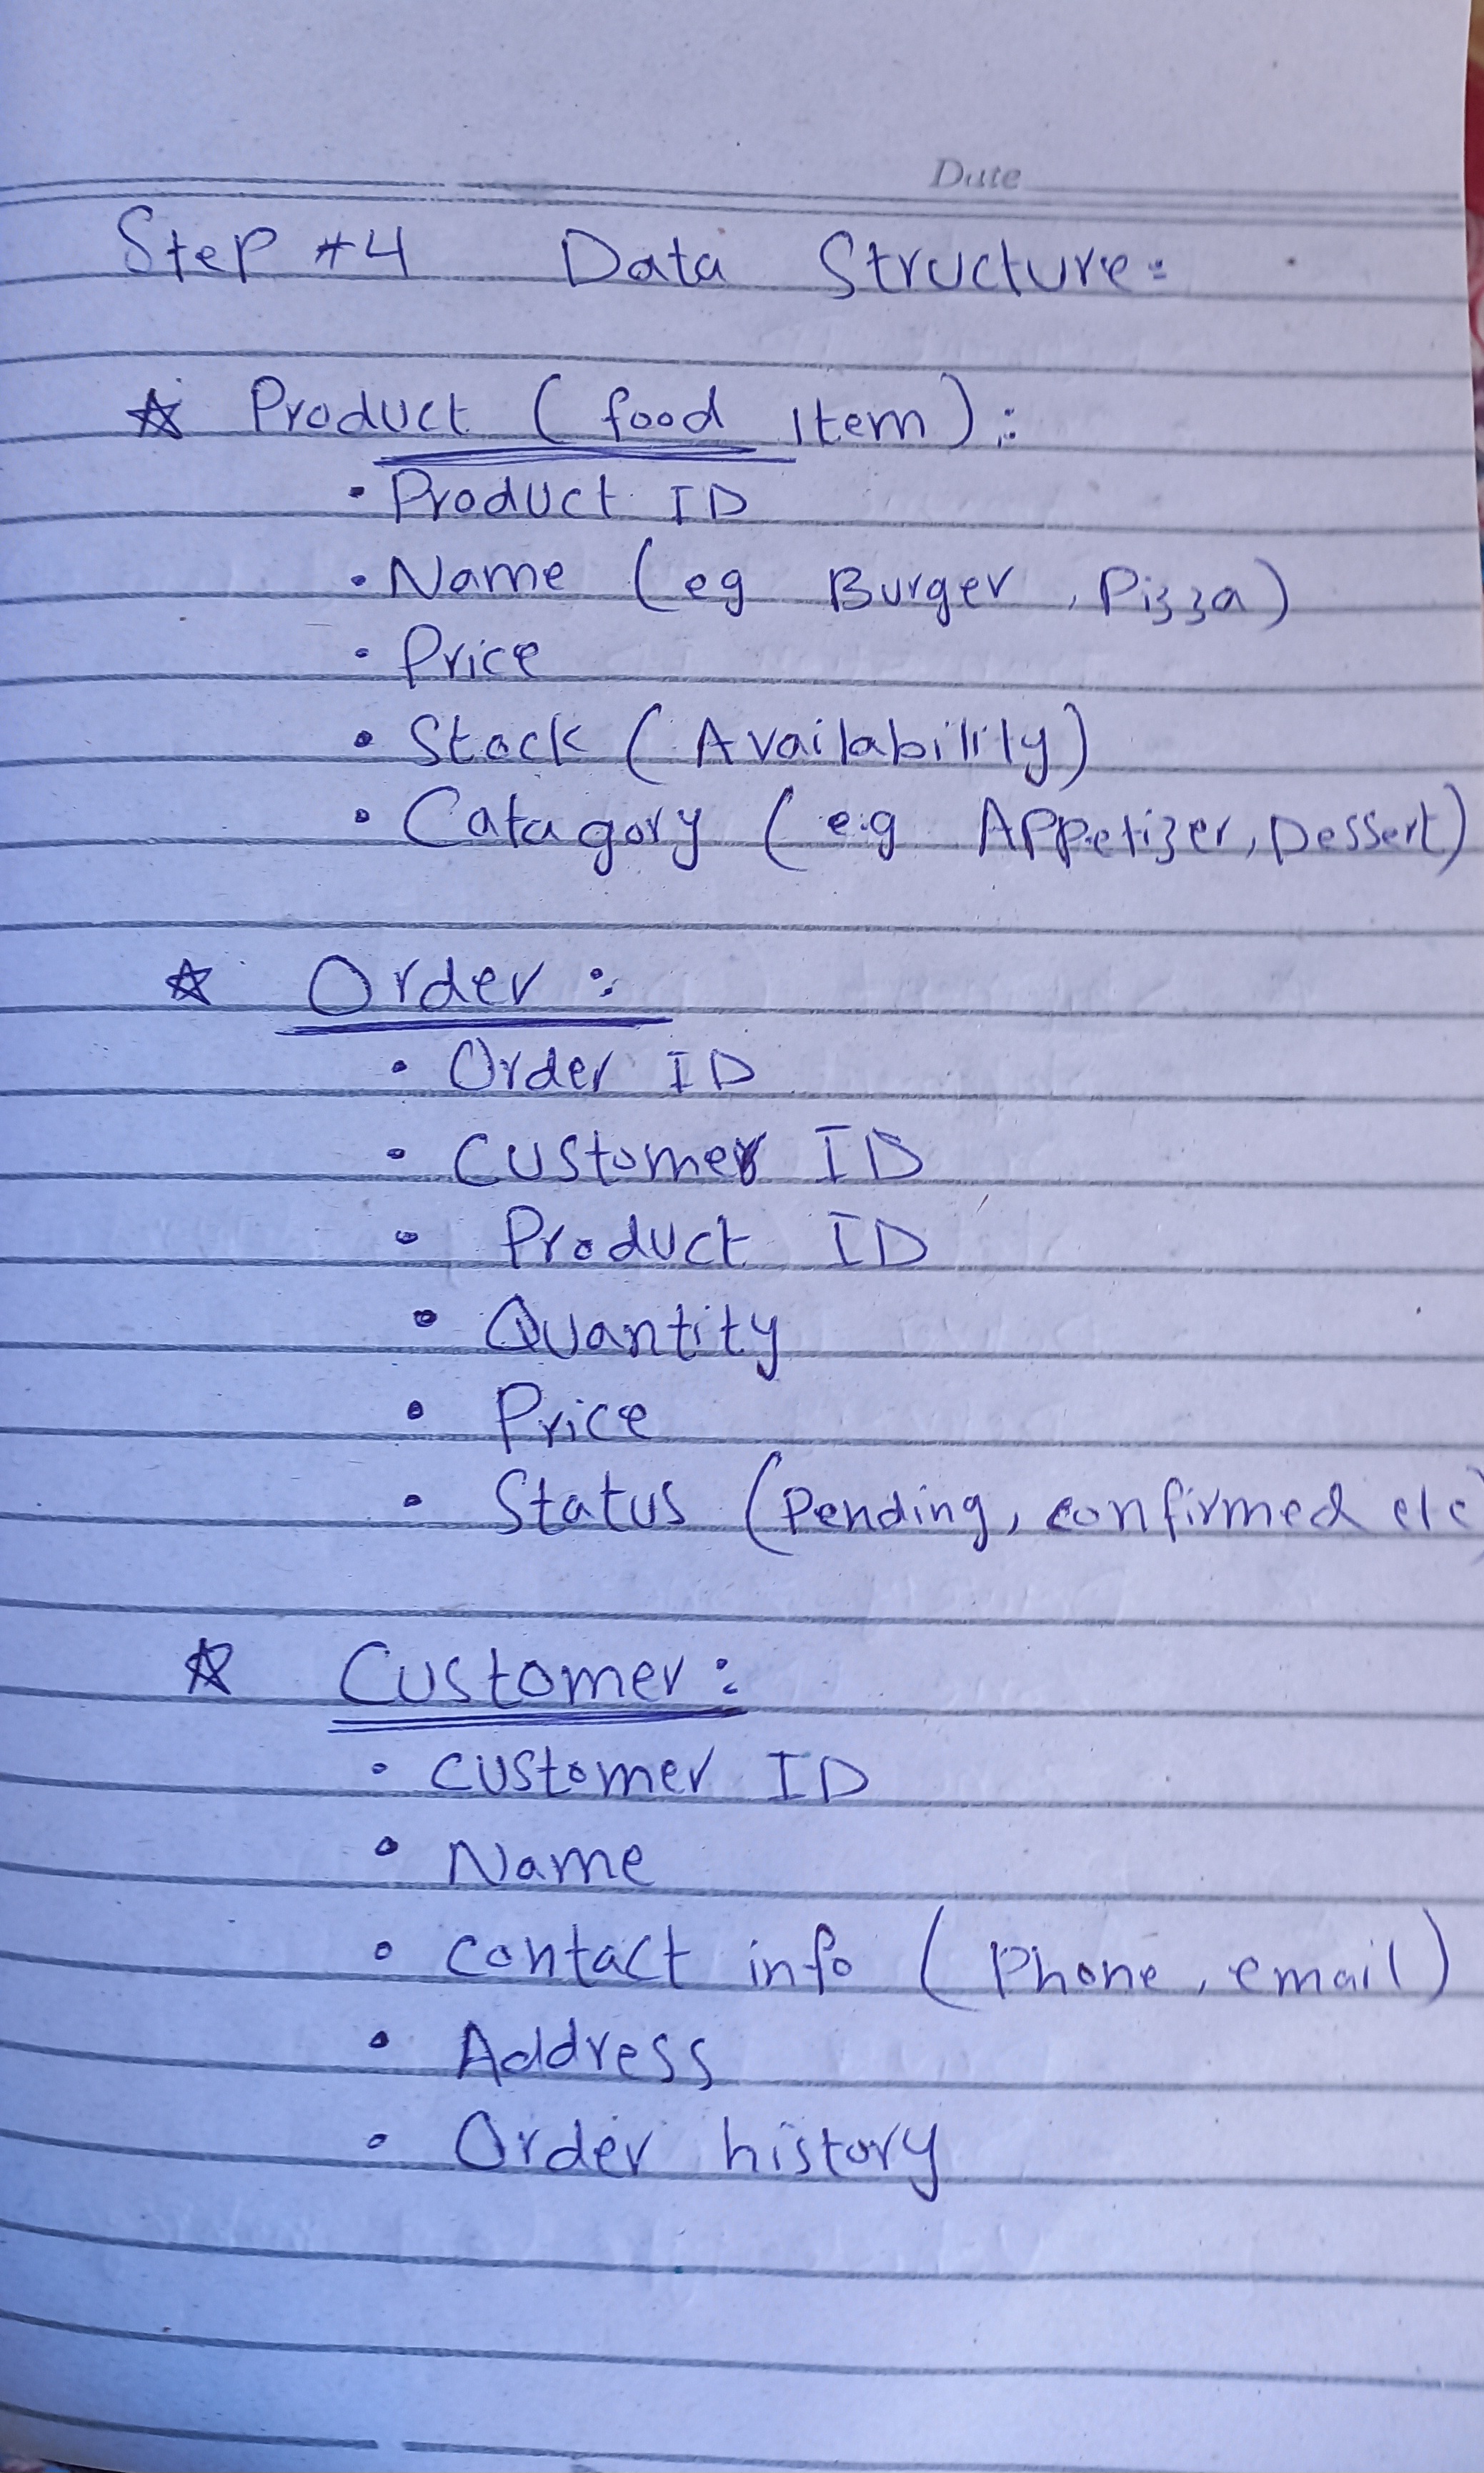 Date
Step #4 Data Structure:
☆ Product (food item):
• Product ID
• Name (eg Burger, Pizza)
• Price
• Stock (Availability)
• Catagory (e.g Appetizer, Dessert)
☆ Order:
• Order ID
• Customer ID
• Product ID
• Quantity
• Price
• Status (Pending, confirmed etc)
☆ Customer:
• Customer ID
• Name
• contact info (Phone, email)
• Address
• Order history